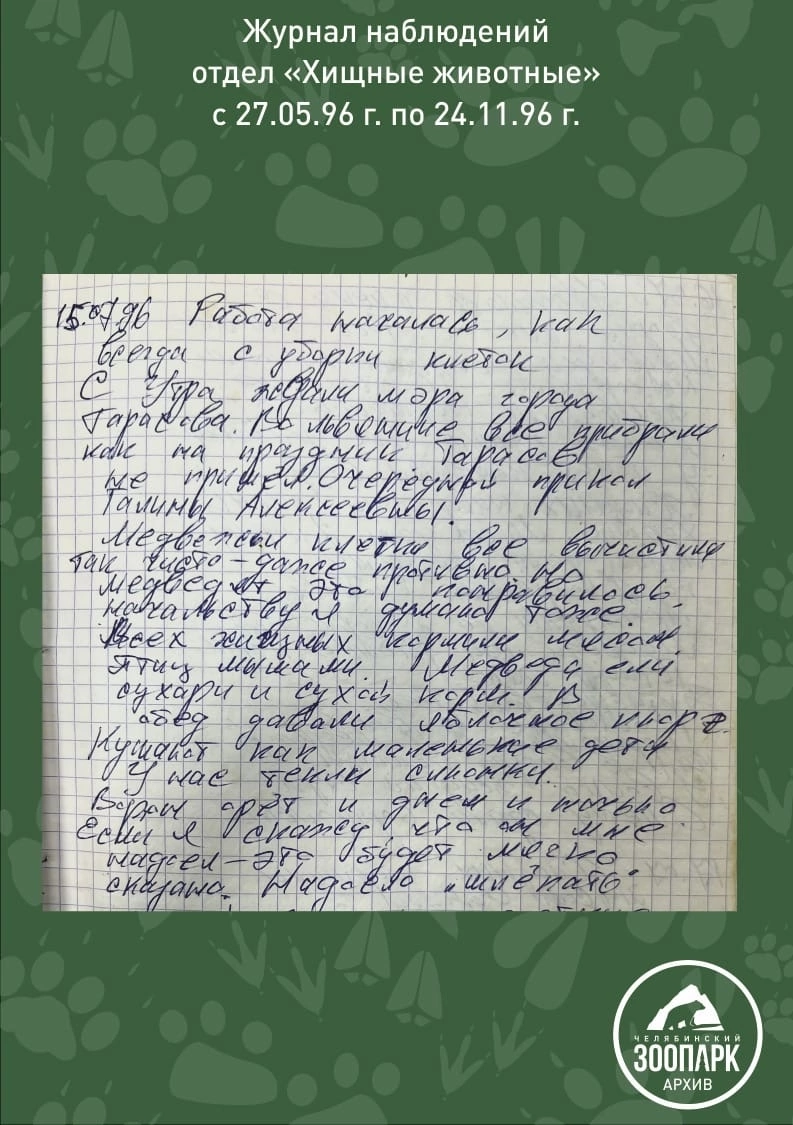 Журнал наблюдений
отдел «Хищные животные»
с 27.05.96 г. по 24.11.96 г.
15.07.96 Работа началась, как
всегда с уборки клеток
С Утра ждали мэра города
Тарасова. Вольвешние все прибрали
как на праздник Тарасов
не пришёл. Очередной прикол
Галины Алексеевны.
Медвежьи клетки все вычистили
так чисто-даже противно, но
медведям это понравилось,
начальству я думаю тоже.
Всех хищных кормили мясом
птиц мышами. Медведа ели
сухари и сухой корм. В
обед давали яблочное пюре.
Кушают как маленькие дети
У нас текли слюнки.
Ворон орёт и днем и ночью
Если я скажу что он мне
надоел-это будет мягко
сказано. Надоело "шлёпать"
ЧЕЛЯБИНСКИЙ
ЗООПАРК
АРХИВ